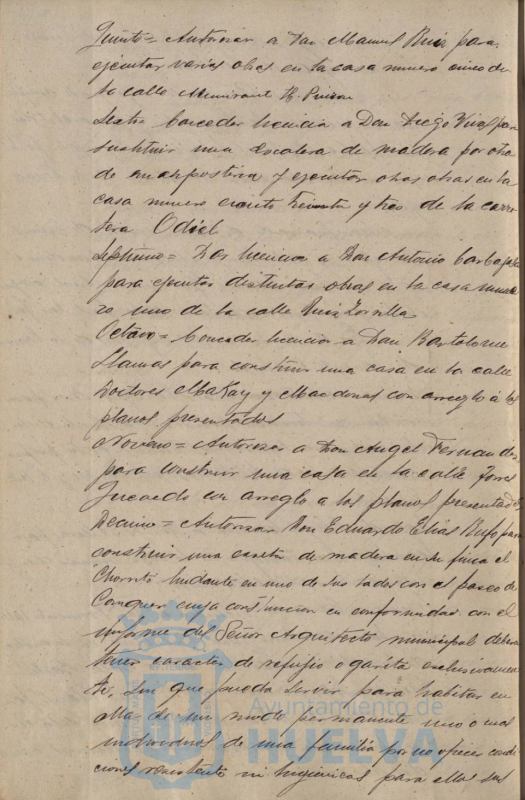 Quinto = Autorizar a Don Manuel Ruiz para
ejecutar varias obras en la casa numero cinco de
la calle Almirante H. Pinzon
Sexto Conceder licencia a Don Diego Vival para
sustituir una escalera de madera por otra
de mamposteria y ejecutar otras obras en la
casa numero ciento treinta y tres de la carre
tera Odiel
Septimo = Dar licencia a Don Antonio Carbajal
para ejecutar distintas obras en la casa nume
ro uno de la calle Ruiz Zorrilla
Octavo = Conceder licencia a Don Bartolome
Llamas para construir una casa en la calle
Doctores Makay y Macdonas con arreglo á los
planos presentados
Noveno = Autorizar a Don Angel Fernandez
para construir una casa en la calle Jorre
con arreglo a los planos presentados
Decimo = Autorizar Don Eduardo Elias Rufo para
construir una caseta de madera en su finca el
Chorrito lindante en uno de sus lados con el paseo de
Conquero cuya construccion en conformidad con el
informe del Señor Arquitecto municipal debera
tener caracter de refugio o garita exclusivamen
te, sin que pueda servir para habitar en
ella de un modo permanente uno o mas
individuos de una familia por no ofrecer condi
ciones ni higienicas para ellos sus
Ayuntamiento de
HUELVA